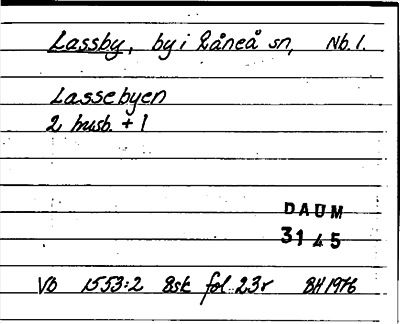 Lassby, by i Råneå sn, Nb. l.
Lassebyen
2 husb. + 1
DAUM
3145
Vb 1553:2 Bsk fol. 23r BH 1976